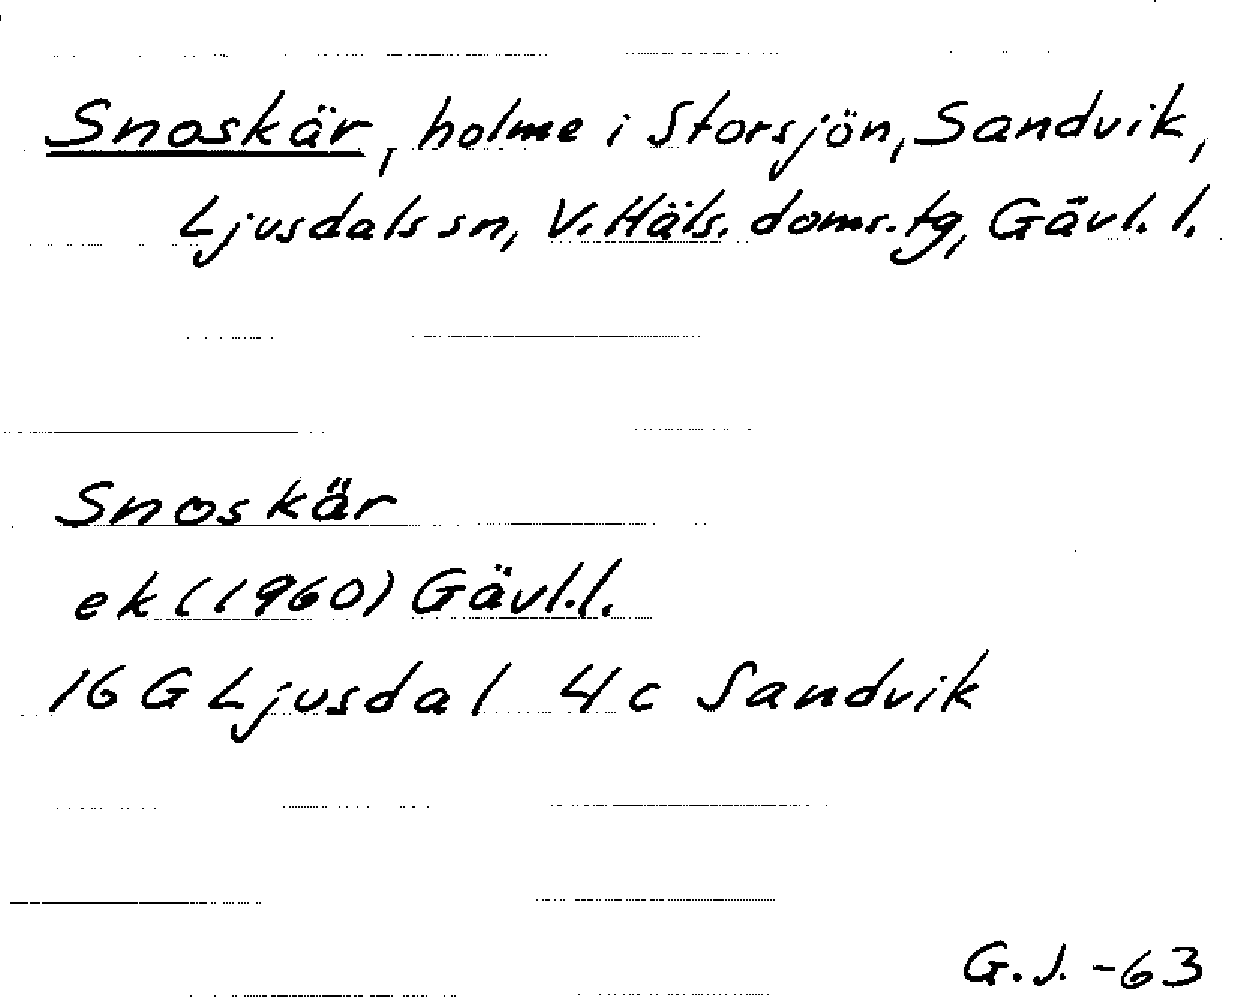 Snoskär, holme i Storsjön, Sandvik,
Ljusdals sn, V. Häls. doms. tg, Gävl. l.
Snoskär
ek (1960) Gävl. l.
16 G Ljusdal 4 c Sandvik
G. J. -63